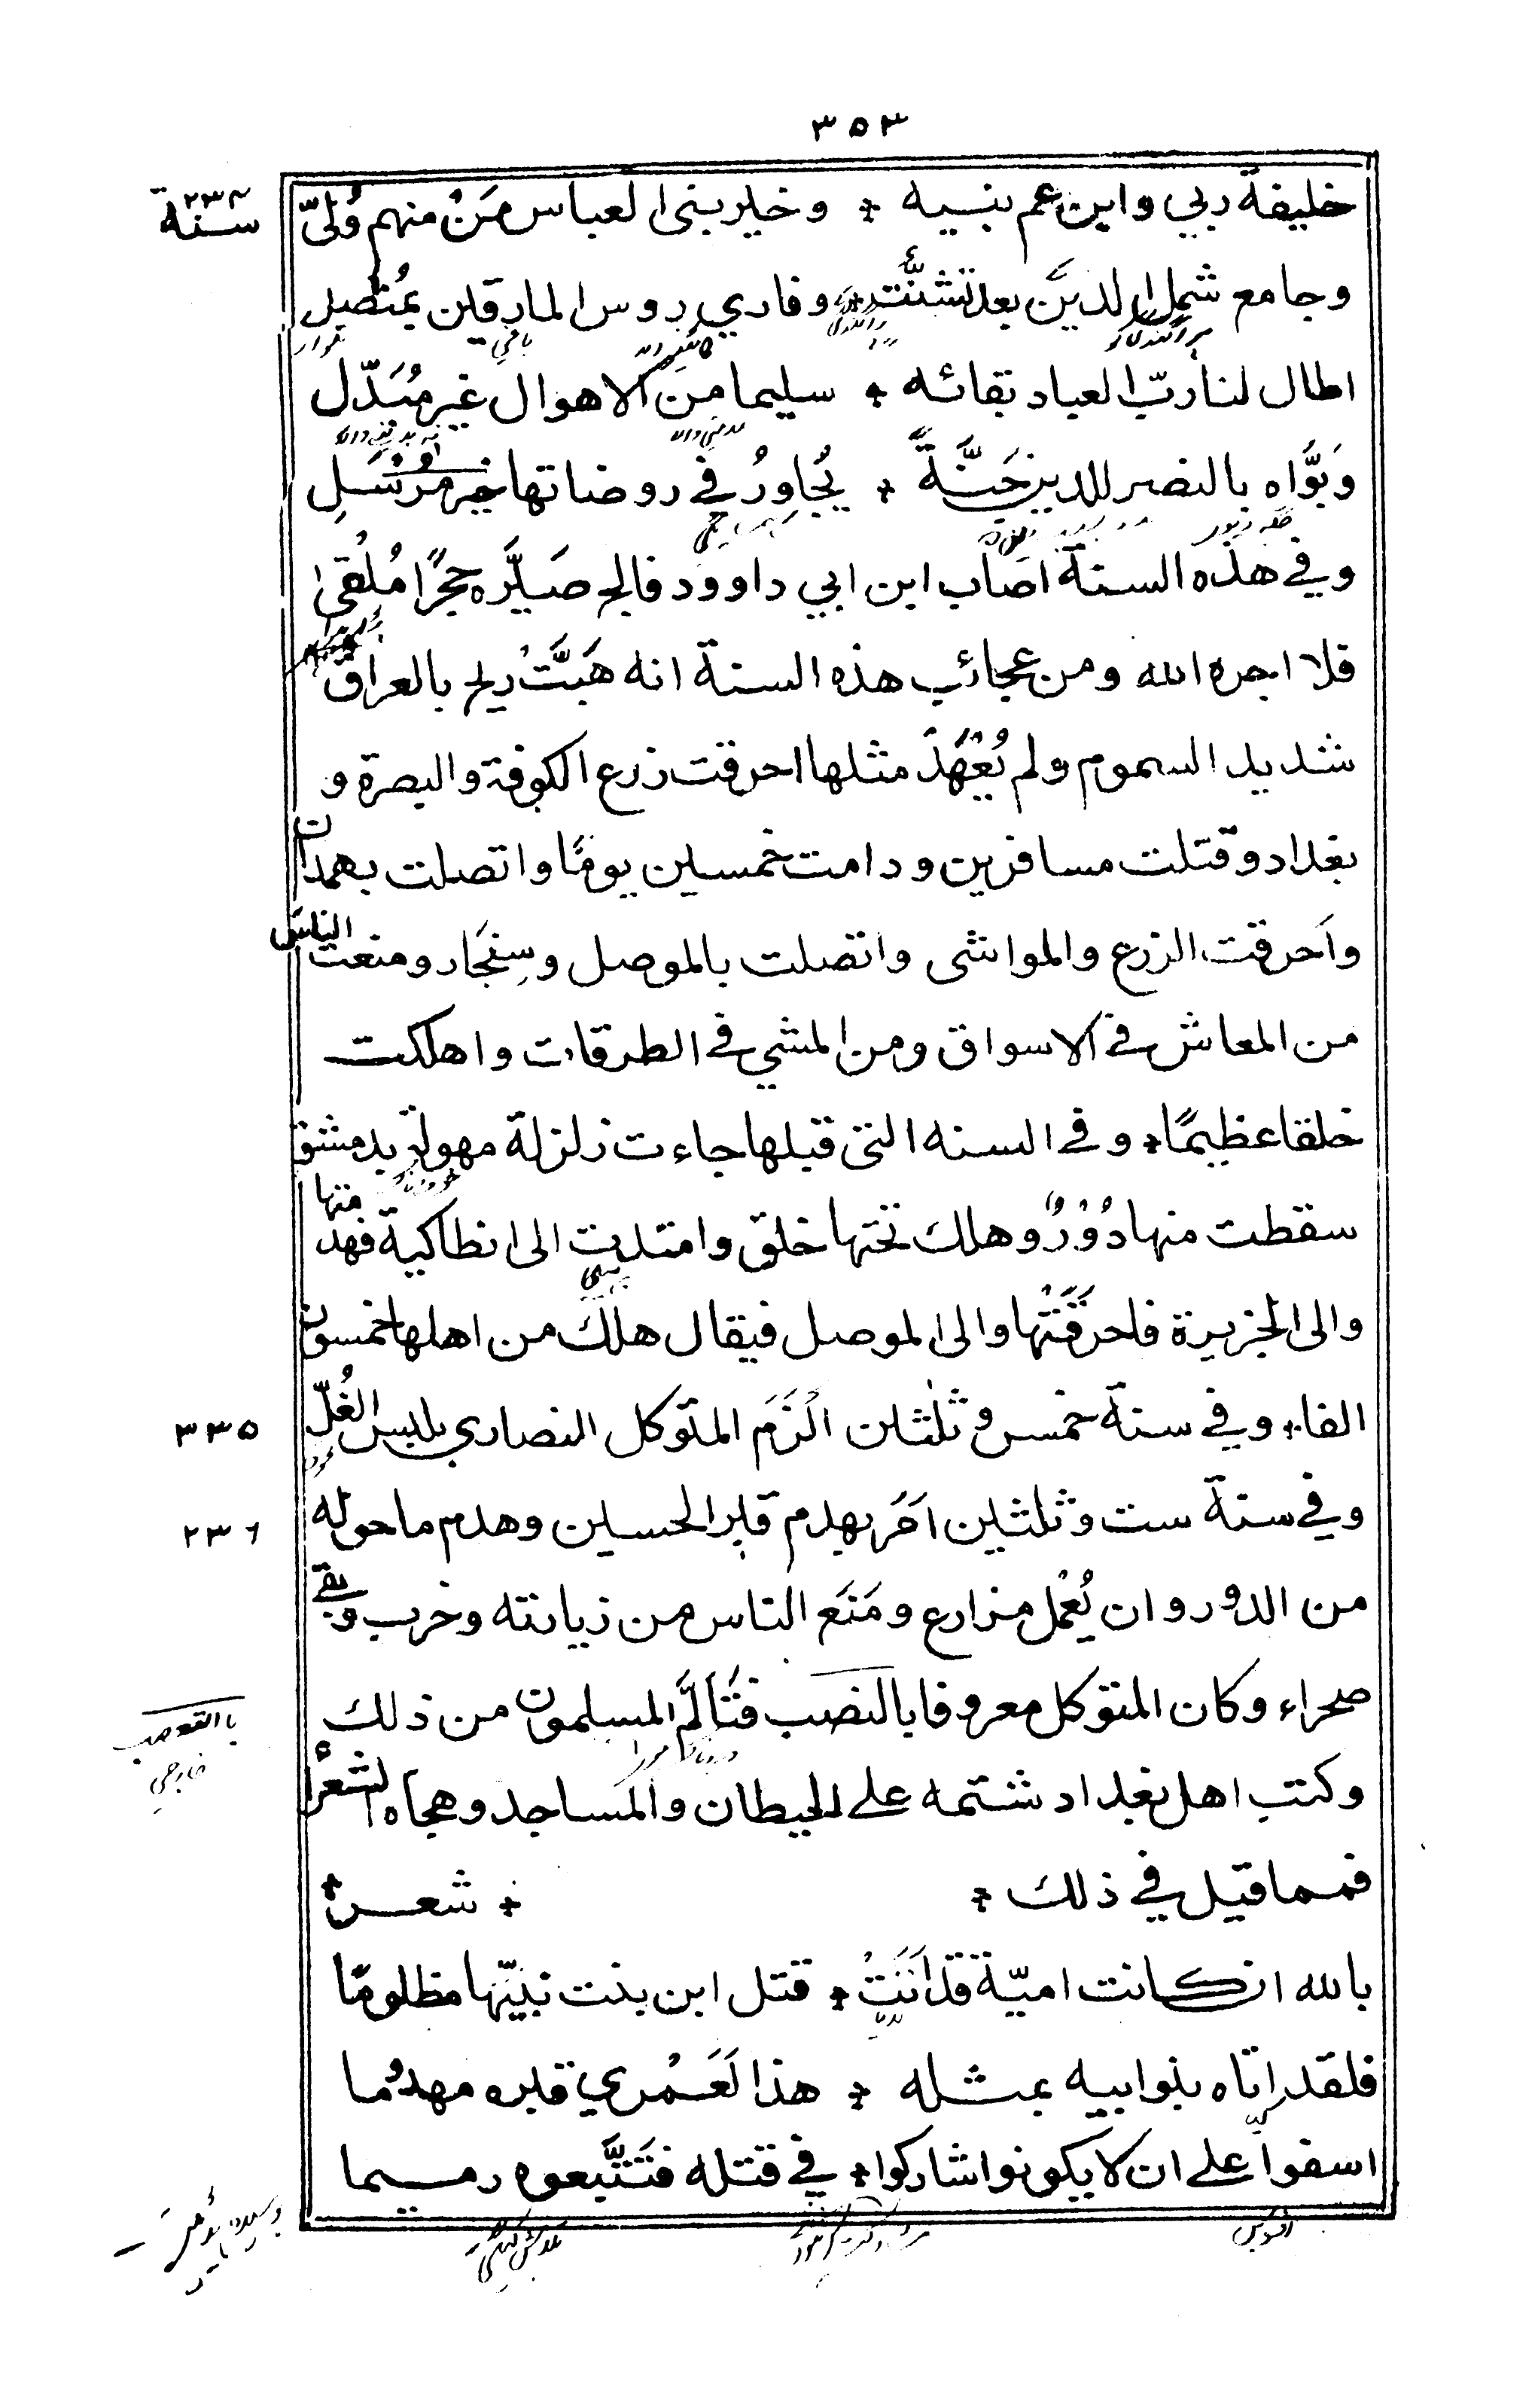 ٣٥٣
خليفة ربي وابن عم بنسيه ❊ وخير بنى العباس مَنْ منهم وُلىّ
سنة ٢٣٤
وجامع شمل الدين بعد تشتُّت ❊ وفاري روس المارقين بمُنْصِل
اطال لنا ربّ العباد بقائه ❊ سليما من الاهوال غير مُبَدّل
وَبَوَّاه بالنصر للدين جَنَّةً ❊ يُجاوِرُ في روضاتها خير مُرْسَلِ
وفي هذه السنة اصاب ابن ابي داوود فالج صَيَّره حجرًا مُلْقى
فلا اجره الله ومن عجائب هذه السنة انه هَبَّتْ ريح بالعراق
شديد السموم ولم يُعْهَدْ مثلها احرقت زرع الكوفة والبصرة و
بغداد وقتلت مسافرين ودامت خمسين يومًا واتصلت بهمدان
واَحرقت الزرع والمواشى واتصلت بالموصل وسِنجَار ومنعت الناسَ
من المعاش في الاسواق ومن المشي في الطرقات واهلكت
خلقا عظيمًا ❊ وفي السنه التي قبلها جاءت زلزلة مهولة بدمشق
سقطت منها دُوْرٌ وهلك تحتها خلق وامتدت الى انطاكية فهدمتها
والى الجزيرة فاحرقَتْها والى الموصل فيقال هلك من اهلها خمسون
الفا ❊ وفي سنة خمس وثلثين اَلْزَمَ المتوكل النصاري بلبس الغُلّ
٣٣٥
وفي سنة ست وثلثين اَمَرَ بهدم قبر الحسين وهدم ما حوله
٢٣٦
من الدور وان يُعْمل مزارع ومَنَع الناس من زيارته وخرب وبقي
صحراء وكان المتوكل معروفا بالنصب فتَاَلَّم المسلمون من ذلك
با التعصب
خارجي
وكتب اهل بغداد شتمه على الحيطان والمساجد وهجاه الشعرا
فمما قيل في ذلك ❊ ❊ شعر ❊
بالله ان كانت اميّة قد اَتَتْ ❊ قتل ابن بنت نبيّها مظلومًا
فلقد اتاه بنو ابيه بمثله ❊ هذا لَعَمْري قبره مهدُوما
اسفوا على ان لا يكونوا شاركوا ❊ في قتله فتَتَبَّعوه رميما
افسوس